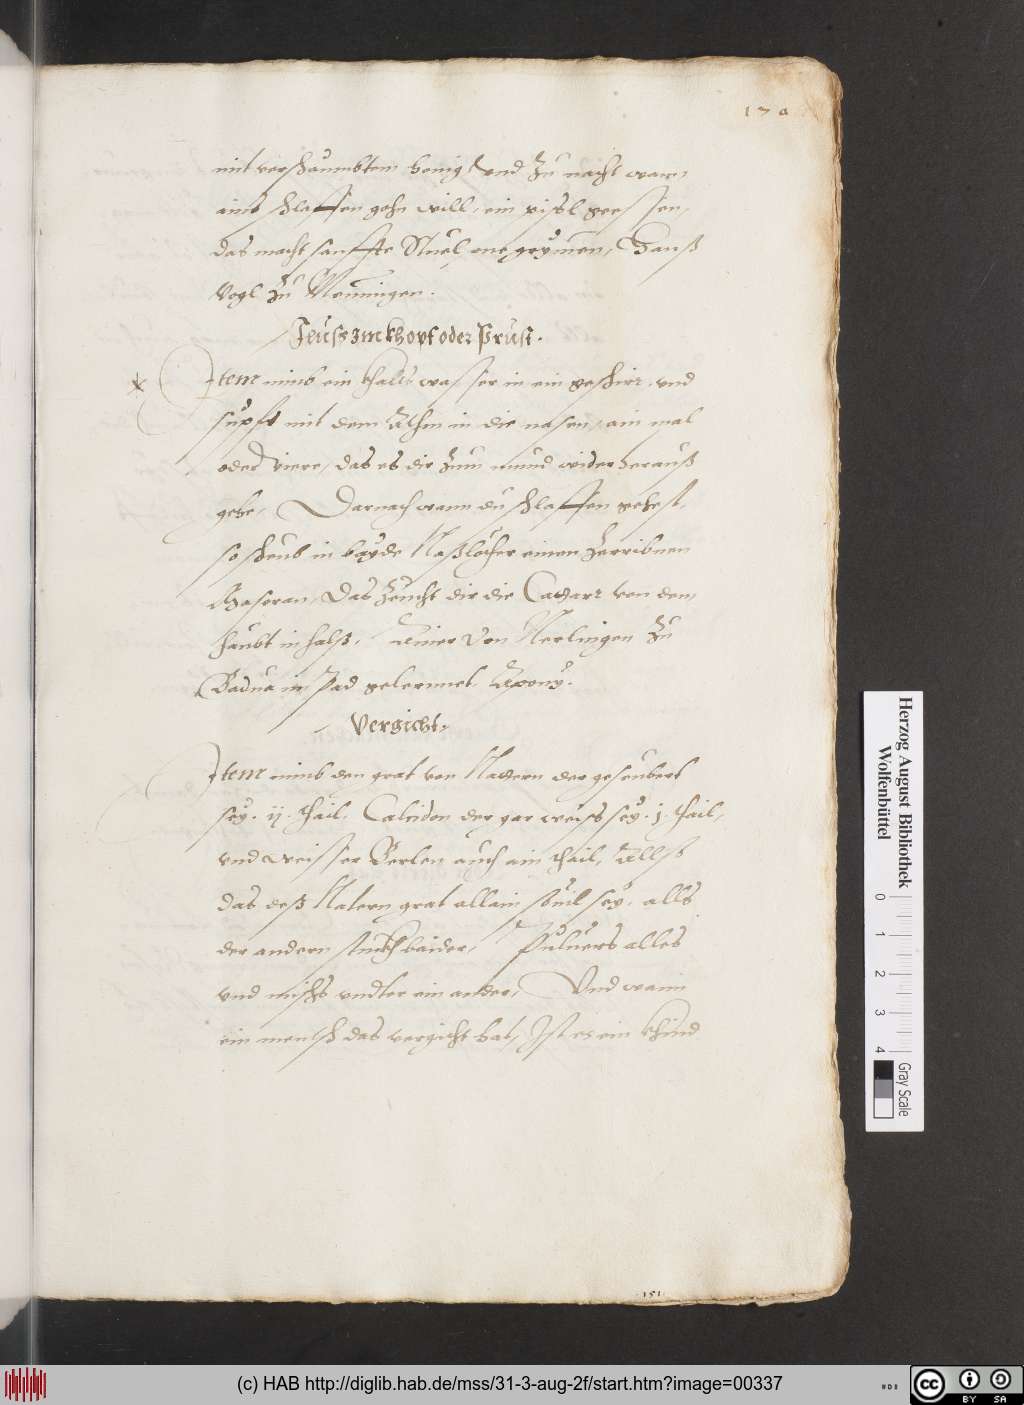 170
mit verschaumbtem honig, und zu nacht wann
ains schlaffen gehn will, ein pissl geessen,
das macht sanffte Stuel one grymmen, Hanß
Vogl zu Memingen.
Fluß im khopf oder Prust.
Item nimb ein khalts wasser in ein geschirr, und
supfs mit dem Athm in die nasen, ain mal
oder viere, das es dir zum mund wider herauß
gehe, Darnach wann du schlaffen gehest,
so scheub in bayde Naßlöcher einen zerribnen
Saferan, Das zeucht dir die Cattarr von dem
haubt in halß. Ainer von Nerlingen zu
Padua im Pad gelernnet Apony.
Vergicht.
Item nimb den grat von Nattern der geseubert
sey. ij. thail. Calcidon der gar weiss sey. j. thail,
und weisser Perlen auch ain thail, Allß
das deß Natern grat allain souil sey, alls
der andern stuckh baider, Puluers alles
und mischs undter ein ander, Und wann
ein mensch das vergicht hat, Ist es ein khind
151
Herzog August Bibliothek
Wolfenbüttel
0 1 2 3 4
Gray Scale
(c) HAB http://diglib.hab.de/mss/31-3-aug-2f/start.htm?image=00337
cc BY SA